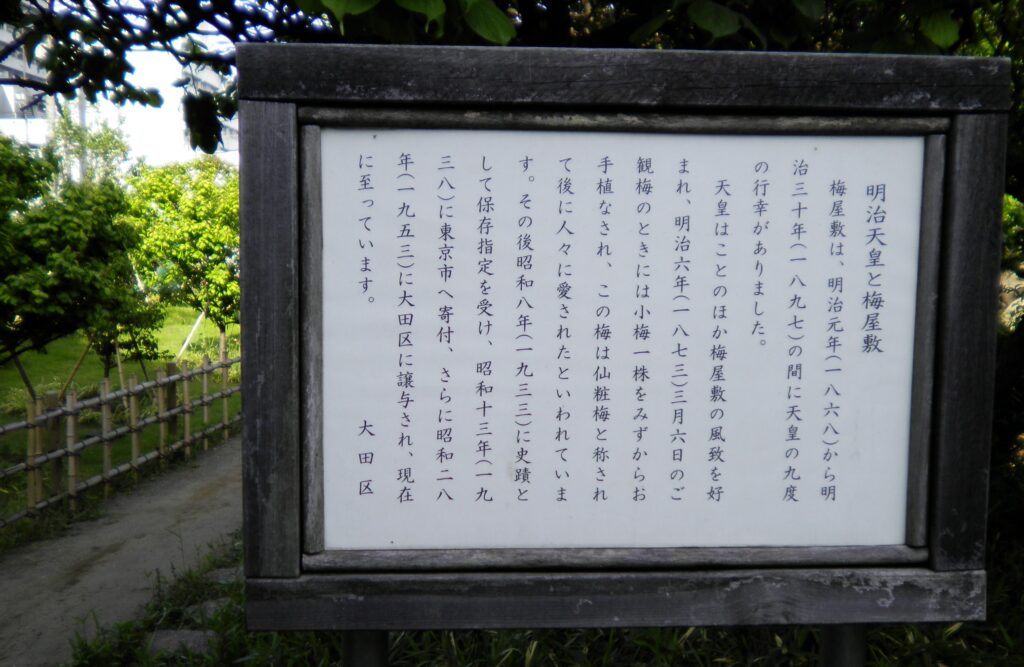 明治天皇と梅屋敷
梅屋敷は、明治元年(一八六八)から明
治三十年(一八九七)の間に天皇の九度
の行幸がありました。
天皇はことのほか梅屋敷の風致を好
まれ、明治六年(一八七三)三月六日のご
観梅のときには小梅一株をみずからお
手植なされ、この梅は仙粧梅と称され
て後に人々に愛されたといわれていま
す。その後昭和八年(一九三三)に史蹟と
して保存指定を受け、昭和十三年(一九
三八)に東京市へ寄付、さらに昭和二八
年(一九五三)に大田区に譲与され、現在
に至っています。
大田区